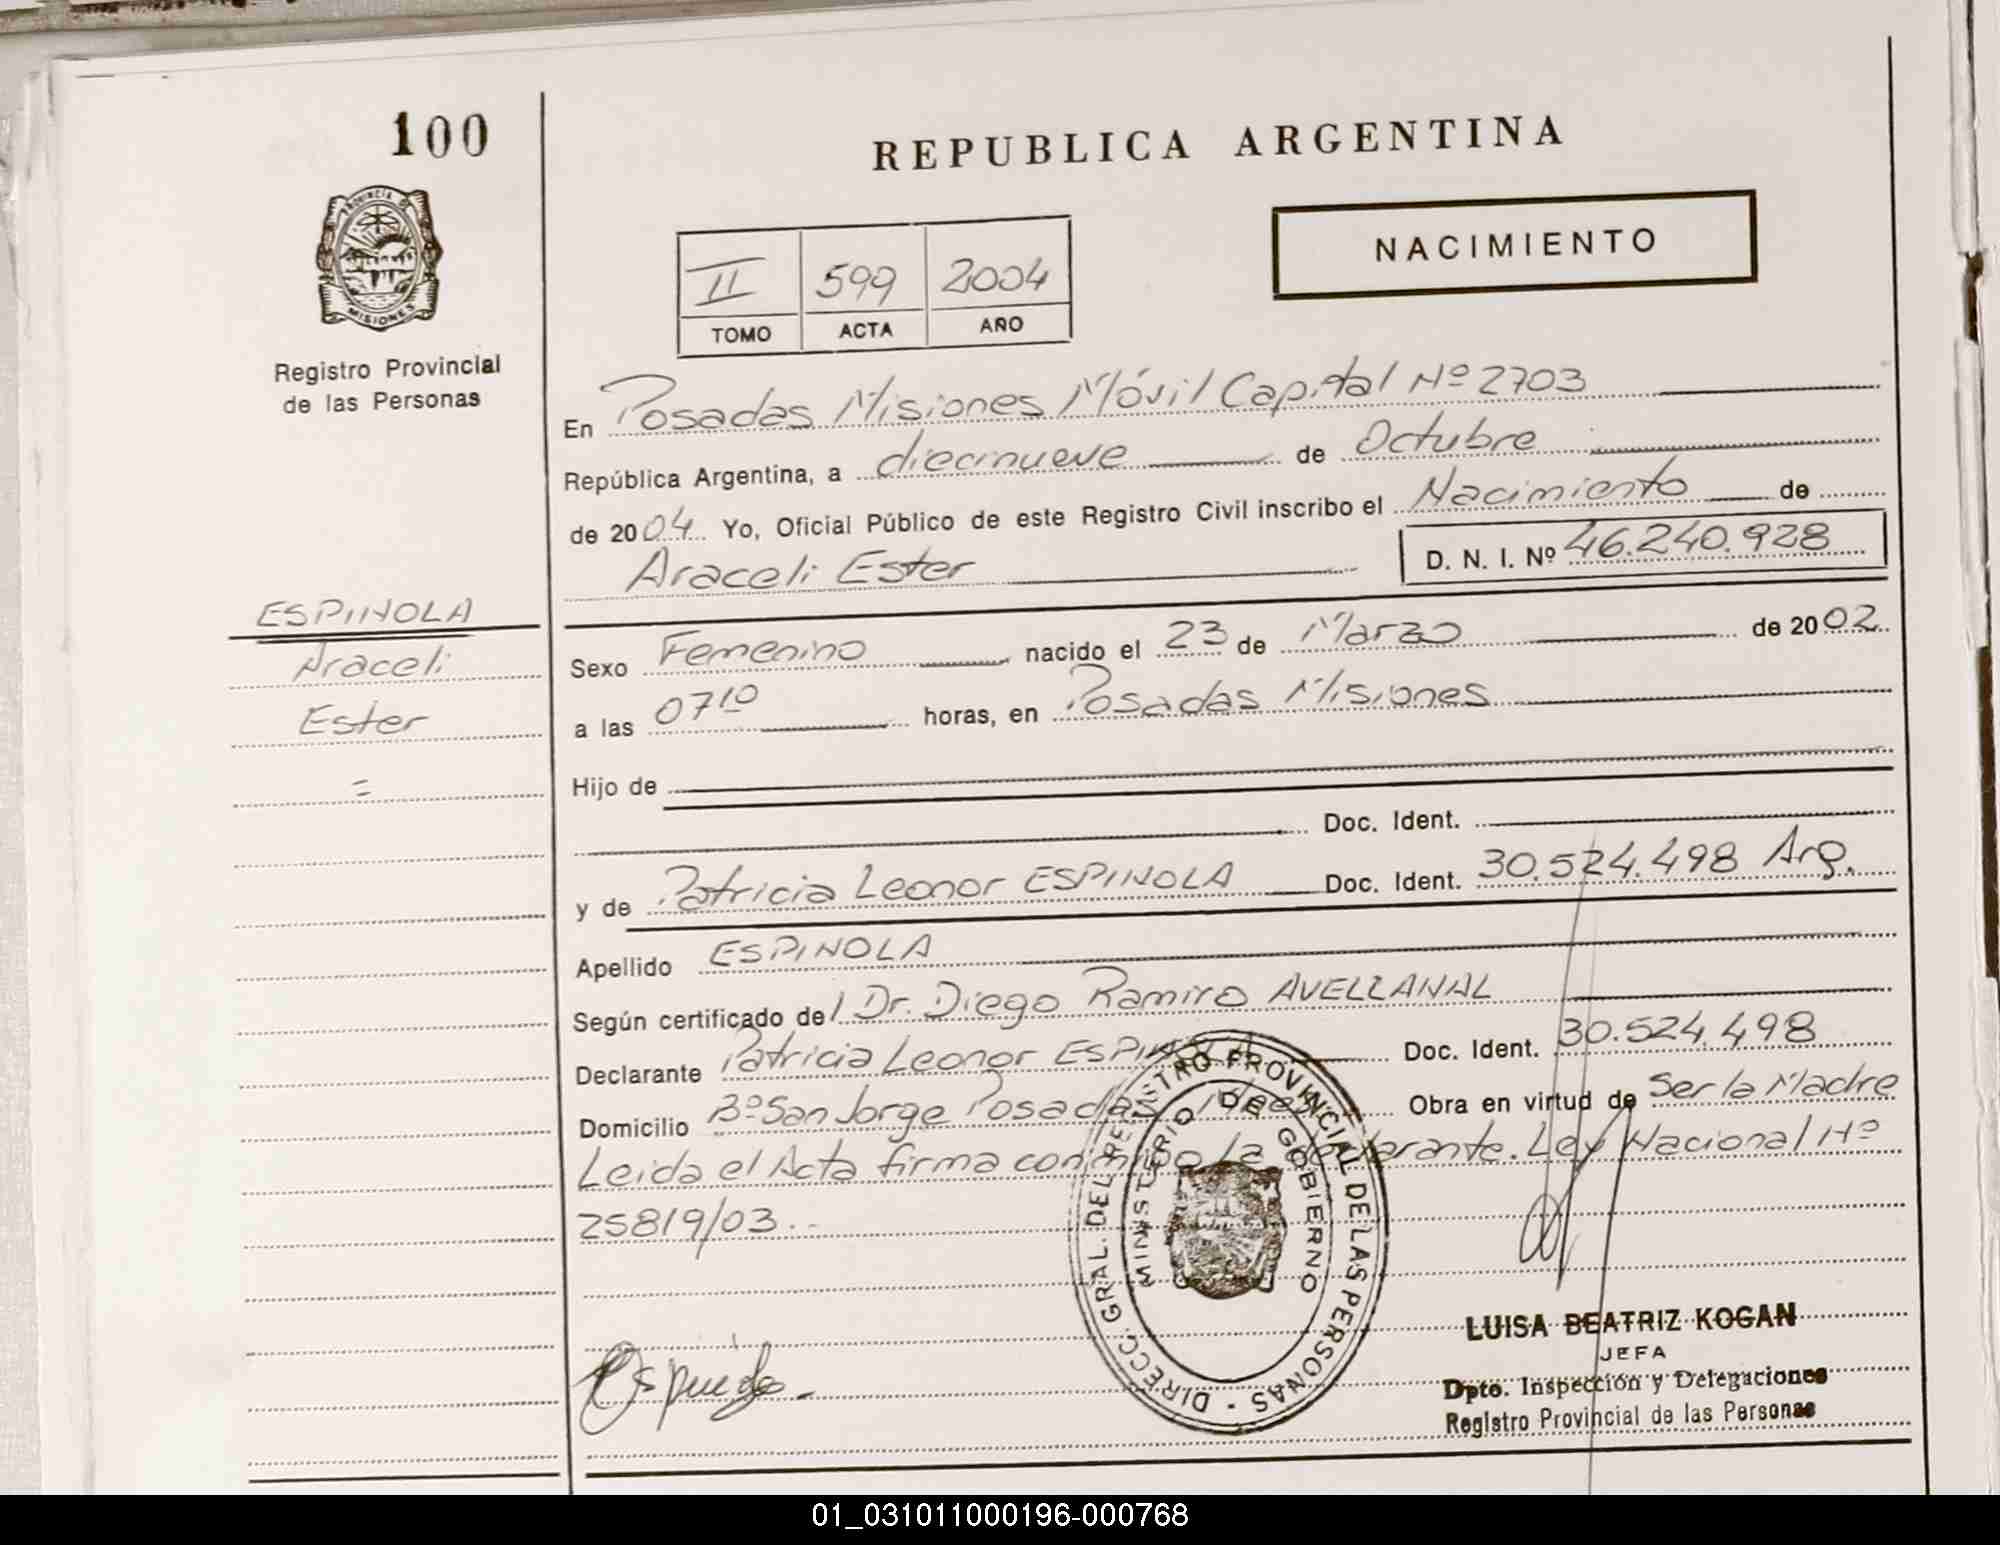 100
REPUBLICA ARGENTINA
PROVINCIA DE
MISIONES
Registro Provincial
de las Personas
II 599 2004
TOMO ACTA AÑO
NACIMIENTO
En Posadas Misiones Móvil Capital Nº 2703
República Argentina, a diecinueve de Octubre
de 2004 Yo, Oficial Público de este Registro Civil inscribo el Nacimiento de
Araceli Ester D. N. I. Nº 46.240.928
ESPINOLA
Araceli
Ester
=
Sexo Femenino nacido el 23 de Marzo de 2002
a las 0710 horas, en Posadas Misiones
Hijo de
Doc. Ident.
y de Patricia Leonor ESPINOLA Doc. Ident. 30.524.498 Arg.
Apellido ESPINOLA
Según certificado del Dr. Diego Ramiro AVELLANAL
Declarante Patricia Leonor ESPINOLA Doc. Ident. 30.524.498
Domicilio Bº San Jorge Posadas Mnes. Obra en virtud de Ser la Madre
Leida el Acta firma conmigo la declarante. Ley Nacional Nº
25819/03.-
DIRECC. GRAL. DEL REGISTRO PROVINCIAL DE LAS PERSONAS -
MINISTERIO DE GOBIERNO
LUISA BEATRIZ KOGAN
JEFA
Dpto. Inspección y Delegaciones
Registro Provincial de las Personas
01_031011000196-000768